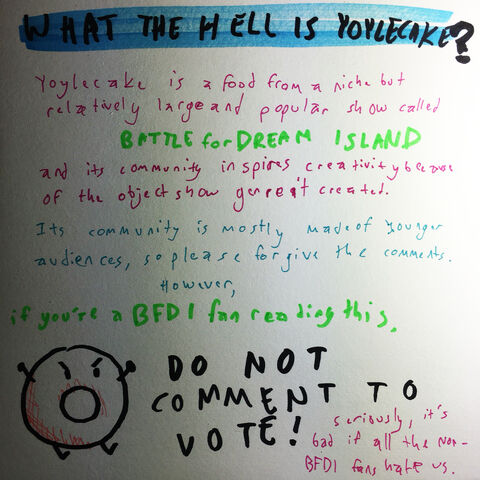 WHAT THE HELL IS YOYLECAKE?
Yoylecake is a food from a niche but
relatively large and popular show called
BATTLE for DREAM ISLAND
and its community inspires creativity because
of the object show genre it created.
Its community is mostly made of younger
audiences, so please forgive the comments.
However,
if you're a BFDI fan reading this,
DO NOT
COMMENT TO
VOTE!
seriously, it's
bad if all the non-
BFDI fans hate us.